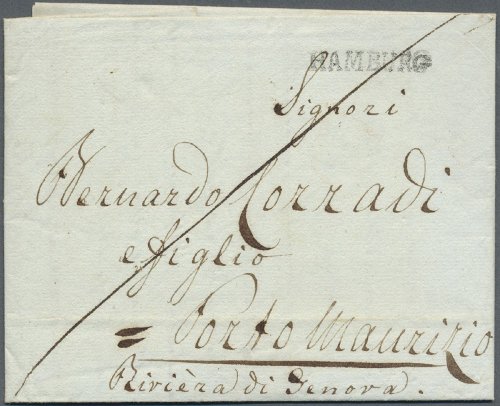 HAMBURG
Signori
Bernardo Corradi
e figlio
= Porto Maurizio
Rivièra di Genova.